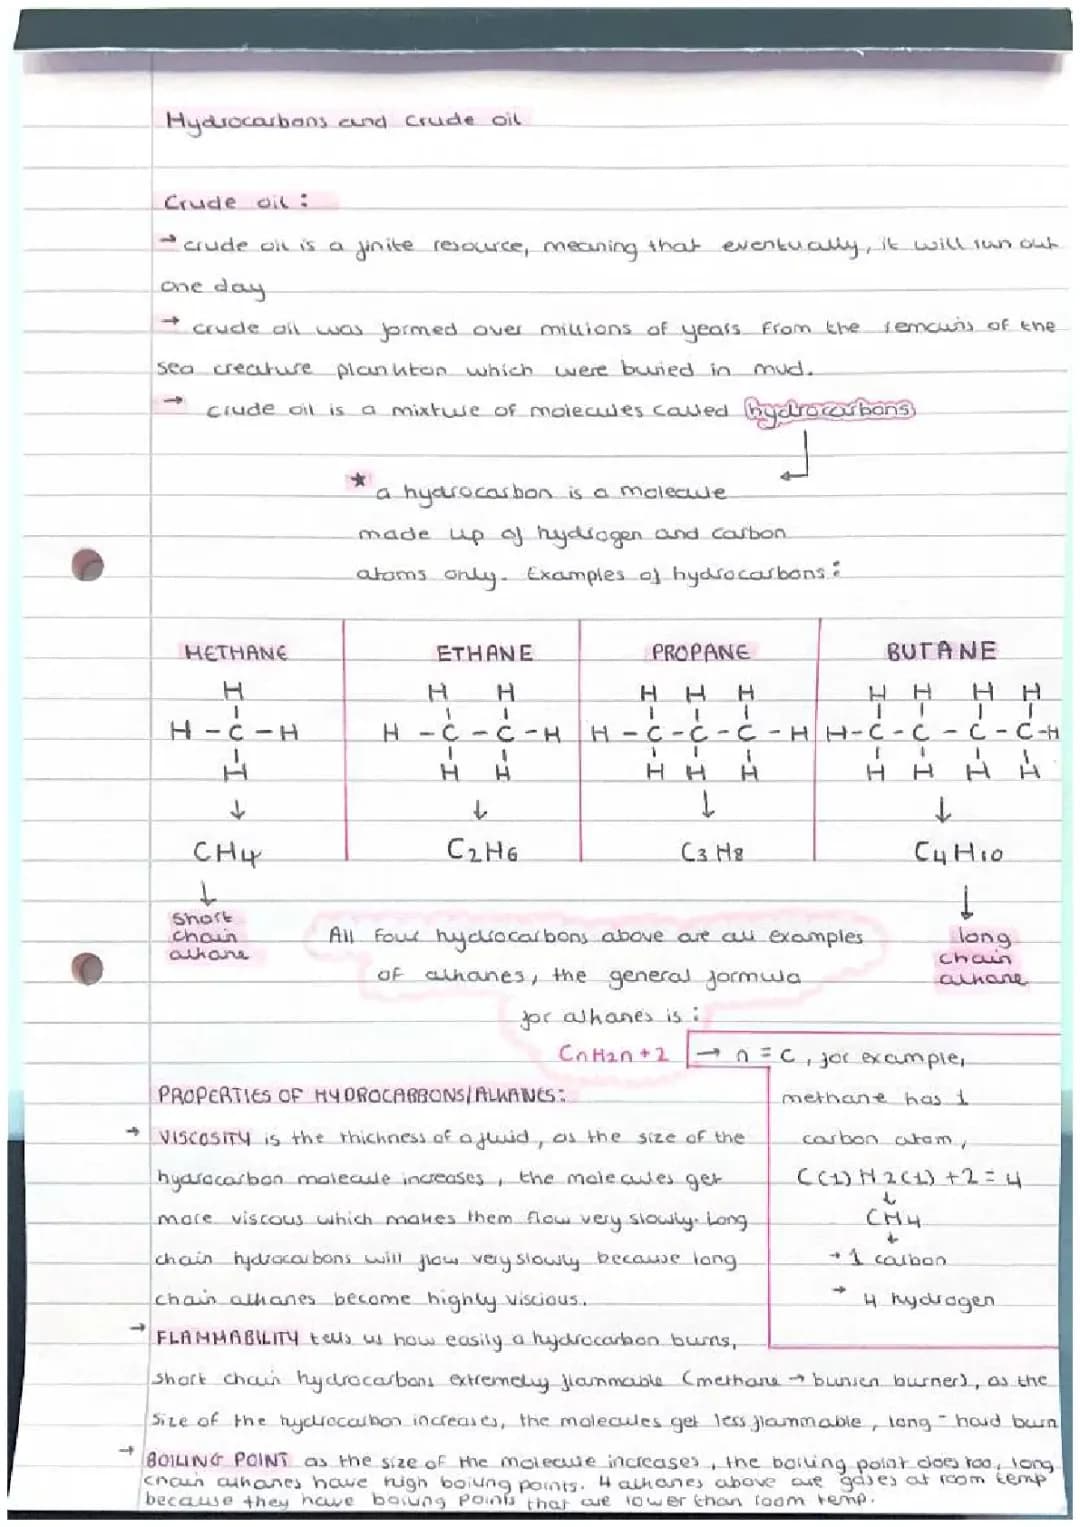 Hydrocarbons and crude oil
Crude oil:
→ crude oil is a finite resource, meaning that eventually, it will run out
one day
→ crude oil was formed over millions of years from the remains of the
sea creature plankton which were buried in mud.
→ crude oil is a mixture of molecules called hydrocarbons
★ a hydrocarbon is a molecule
made up of hydrogen and carbon
atoms only. Examples of hydrocarbons:
METHANE ETHANE PROPANE BUTANE
H H H H H H H H H H
H-C-H H-C-C-H H-C-C-C-H H-C-C-C-C-H
H H H H H H H H H H
↓ ↓ ↓ ↓
CH4 C2H6 C3H8 C4H10
↓ ↓
short
chain
alkane
All four hydrocarbons above are all examples
of alkanes, the general formula
for alkanes is:
long
chain
alkane
CnH2n+2 → n = C, for example,
methane has 1
carbon atom,
C(1) H2(1) +2 = 4
↓
CH4
↓
→ 1 carbon
→ 4 hydrogen
PROPERTIES OF HYDROCARBONS/ALKANES:
→ VISCOSITY is the thickness of a fluid, as the size of the
hydrocarbon molecule increases, the molecules get
more viscous which makes them flow very slowly. Long
chain hydrocarbons will flow very slowly because long
chain alkanes become highly viscious.
→ FLAMMABILITY tells us how easily a hydrocarbon burns,
short chain hydrocarbons extremely flammable (methane → bunsen burner), as the
size of the hydrocarbon increases, the molecules get less flammable, long - hard burn
→ BOILING POINT as the size of the molecule increases, the boiling point does too, long
chain alkanes have high boiling points. 4 alkanes above are gases at room temp
because they have boiling points that are lower than room temp.